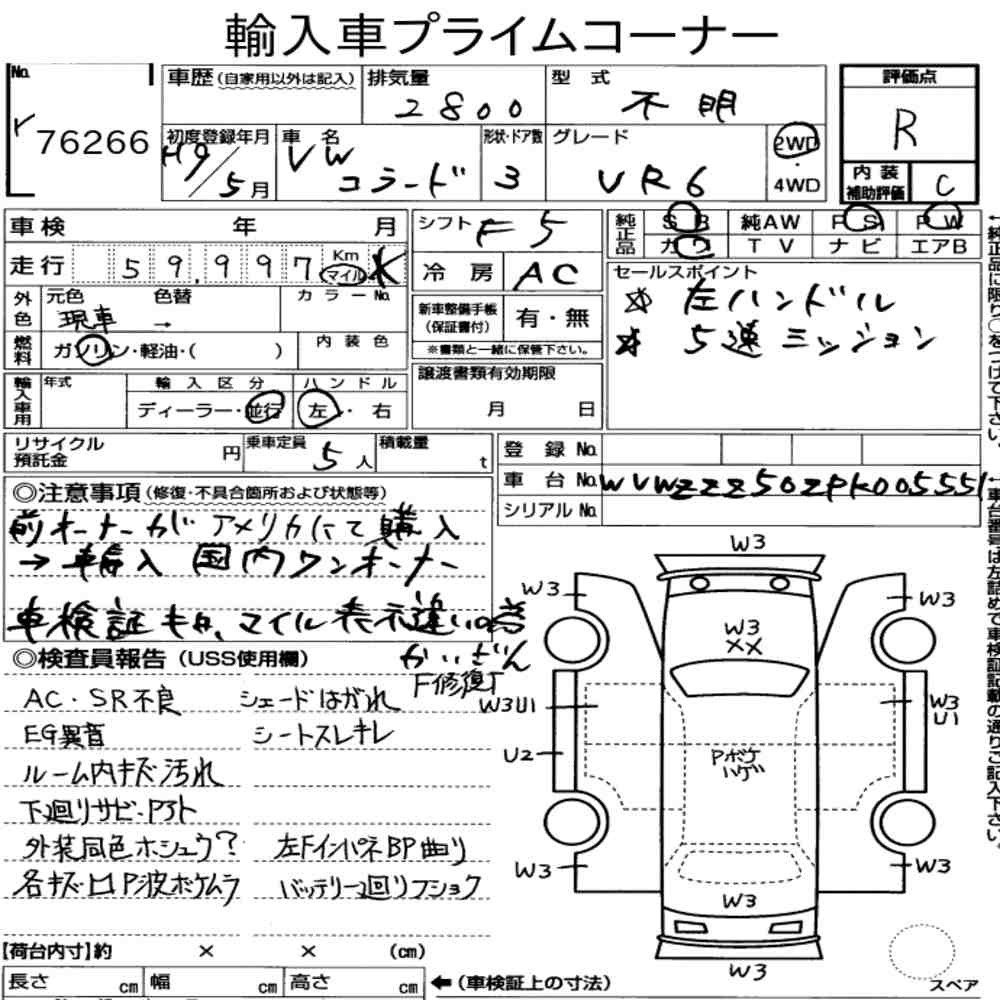 輸入車プライムコーナー
No.
76266
車歴(自家用以外は記入)
排気量
2800
型 式
不明
評価点
R
初度登録年月
H9/5月
車 名
VW
コラード
形状・ドア数
3
グレード
VR6
2WD
・
4WD
内 装
補助評価
C
車検 年 月
走行 59,997
Km
マイル
K
シフト F5
冷 房 AC
純正品
SR 純AW PS PW
カワ TV ナビ エアB
外色
元色 色替 カラーNo.
現車 →
燃料
ガソリン・軽油・( )
内 装 色
新車整備手帳
(保証書付)
有・無
※書類と一緒に保管下さい。
セールスポイント
☆ 左ハンドル
☆ 5速ミッション
輸入車用
年式
輸 入 区 分
ディーラー・並行
ハ ン ド ル
左・右
譲渡書類有効期限
月 日
リサイクル
預託金
円
乗車定員
5人
積載量
t
登 録 No.
車 台 No. WVWZZZ50ZPK005551
シリアル No.
◎注意事項(修復・不具合箇所および状態等)
前オーナーがアメリカにて購入
→ 輸入 国内ワンオーナー
車検証キロ、マイル表示違いの為
かいざん
◎検査員報告(USS使用欄)
F修復
AC・SR不良 シェードはがれ
EG異音 シートスレキレ
ルーム内キズ汚れ
下廻りサビ・
外装同色ホシュウ?
左FインパネBP曲り
各キズ凹P波ボケムラ
バッテリー
W3
W3
W3
W3
XX
W3U1
W3
U1
U2
Pボケ
ハゲ
W3
W3
W3
W3
【荷台内寸】約 × × (cm)
長さ cm 幅 cm 高さ cm
←(車検証上の寸法)
スペア
←純正品に限り○をつけて下さい。
←車台番号は左詰めで車検証記載の通りご記入下さい。